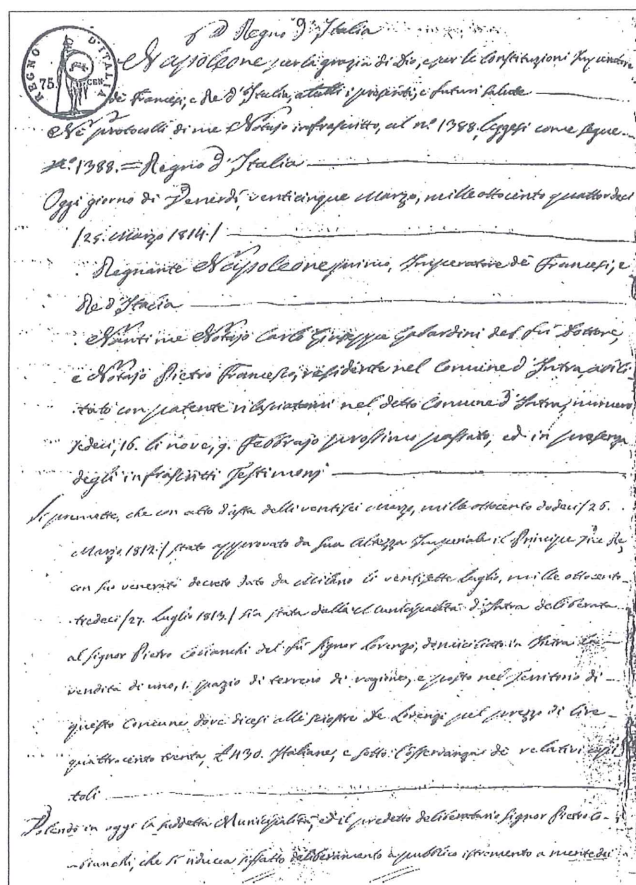 D Regno d'Italia
REGNO D'ITALIA
75. CEN.
Napoleone per la grazia di Dio, e per le Constituzioni Imperadore
de' Francesi, e Re d'Italia, a tutti i presenti, e futuri salute
Ne' protocolli di me Notajo infrascritto, al n.º 1388, leggesi come segue
N.º 1388. = Regno d'Italia
Oggi giorno di Venerdì, venticinque Marzo, mille ottocento quattordeci
/25. Marzo 1814./
Regnante Napoleone primo, Imperatore de' Francesi, e
Re d'Italia
Nanti me Notajo Carlo Giuseppe Gabardini del fù Dottore,
e Notajo Pietro Francesco, residente nel Comune d'Intra, abili-
tato con patente rilasciatami nel detto Comune d'Intra, numero
sedeci, 16. li nove, 9. Febbrajo prossimo passato, ed in presenza
degli infrascritti Testimonj
Si premette, che con atto d'asta delli ventisei Marzo, mille ottocento dodeci /26.
Marzo 1812./ stato approvato da Sua Altezza Imperiale il Principe Vice Re,
con suo venerato decreto dato da Milano li ventisette Luglio, mille ottocento
tredeci /27. Luglio 1813./ sia stata dalla Municipalità d'Intra deliberata
al Signor Pietro Cobianchi del fù Signor Lorenzo, domiciliato in Intra la
vendita di uno, 1. spazio di terreno di ragione, e posto nel Territorio di
questo Comune dove dicesi alle De Lorenzi pel prezzo di lire
quattrocento trenta, £ 430. Italiane, e sotto l'osservanza de' relativi capi-
toli
Volendo in oggi la suddetta Municipalità, ed il predetto deliberatario Signor Pietro Co-
bianchi, che si riduca siffatto deliberamento a pubblico istromento a mente del